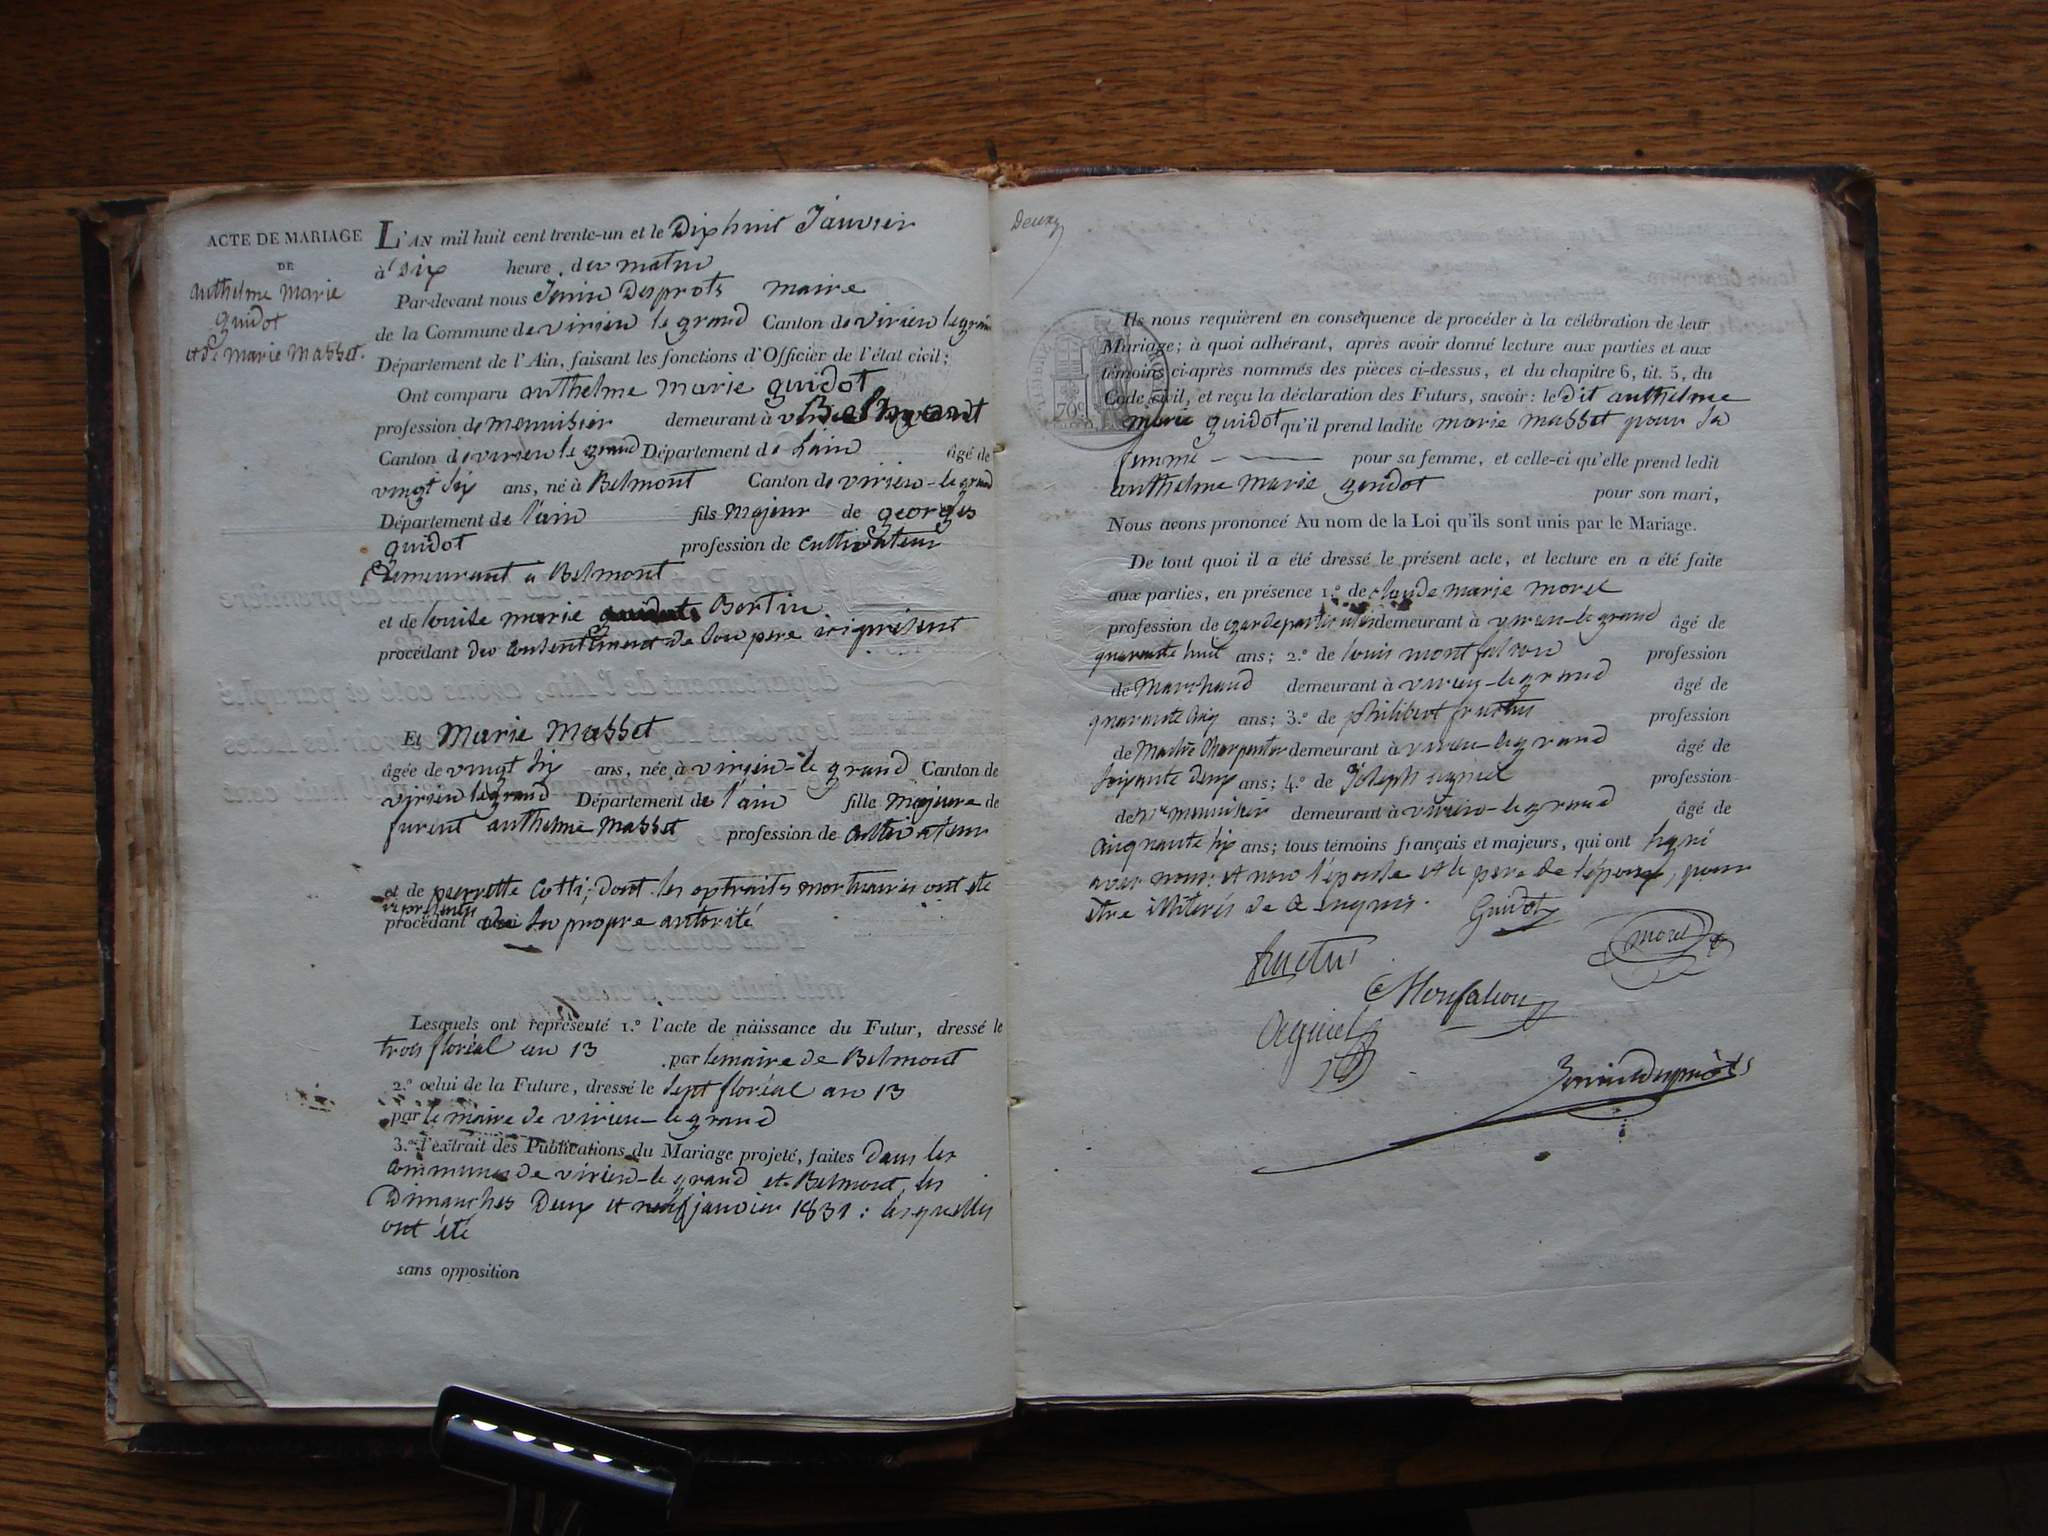 ACTE DE MARIAGE
DE
anthelme Marie
guidot
et de Marie Masset.
L'AN mil huit cent trente-un et le Dix huit Janvier
à six heure du matin
Par-devant nous Jenin Desprots maire
de la Commune de virieu le grand Canton de virieu le grand
Département de l'Ain, faisant les fonctions d'Officier de l'état civil;
Ont comparu anthelme marie guidot
profession de menuisier demeurant à Belmont
Canton de virieu le grand Département de Lain âgé de
vingt six ans, né à Belmont Canton de virieu-le grand
Département de l'ain fils Majeur de georges
guidot profession de cultivateur
Demeurant a Belmont
et de louise marie Bertin
procédant du consentement de son pere ici présent
Et Marie Masset
âgée de vingt six ans, née à virieu-le grand Canton de
virieu legrand Département de l'ain fille Majeure de
furent anthelme Masset profession de cultivateur
et de pierrette Cotti, dont les extraits mortuaires ont été
représentés
procédant de sa propre autorité
Lesquels ont représenté 1.º l'acte de naissance du Futur, dressé le
trois floréal an 13 par lemaire de Belmont
2.º celui de la Future, dressé le sept floréal an 13
par le maire de virieu-le grand
3.º l'extrait des Publications du Mariage projeté, faites dans les
communes de virieu-le grand et Belmont, les
Dimanches Deux et neuf janvier 1831 : lesquelles
ont été
sans opposition
Deux
Ils nous requièrent en conséquence de procéder à la célébration de leur
Mariage; à quoi adhérant, après avoir donné lecture aux parties et aux
témoins ci-après nommés des pièces ci-dessus, et du chapitre 6, tit. 5, du
Code civil, et reçu la déclaration des Futurs, savoir: le dit anthelme
marie guidot qu'il prend ladite marie masset pour sa
femme pour sa femme, et celle-ci qu'elle prend ledit
anthelme Marie guidot pour son mari,
Nous avons prononcé Au nom de la Loi qu'ils sont unis par le Mariage.
De tout quoi il a été dressé le présent acte, et lecture en a été faite
aux parties, en présence 1.º de claude marie morel
profession de demeurant à virieu-le grand âgé de
quarante huit ans; 2.º de louis montfalcon profession
de Marchand demeurant à virieu-le grand âgé de
quarante cinq ans; 3.º de philibert fructus profession
de Maître Charpentier demeurant à virieu-le grand âgé de
soixante deux ans; 4.º de Joseph profession
de menuisier demeurant à virieu-le grand âgé de
cinquante six ans; tous témoins français et majeurs, qui ont signé
avec nous, et non l'épouse et le pere de l'époux, pour
être illiterés de ce enquis.
Guidot
morel
fructus
Monfalcon
Jenin desprots